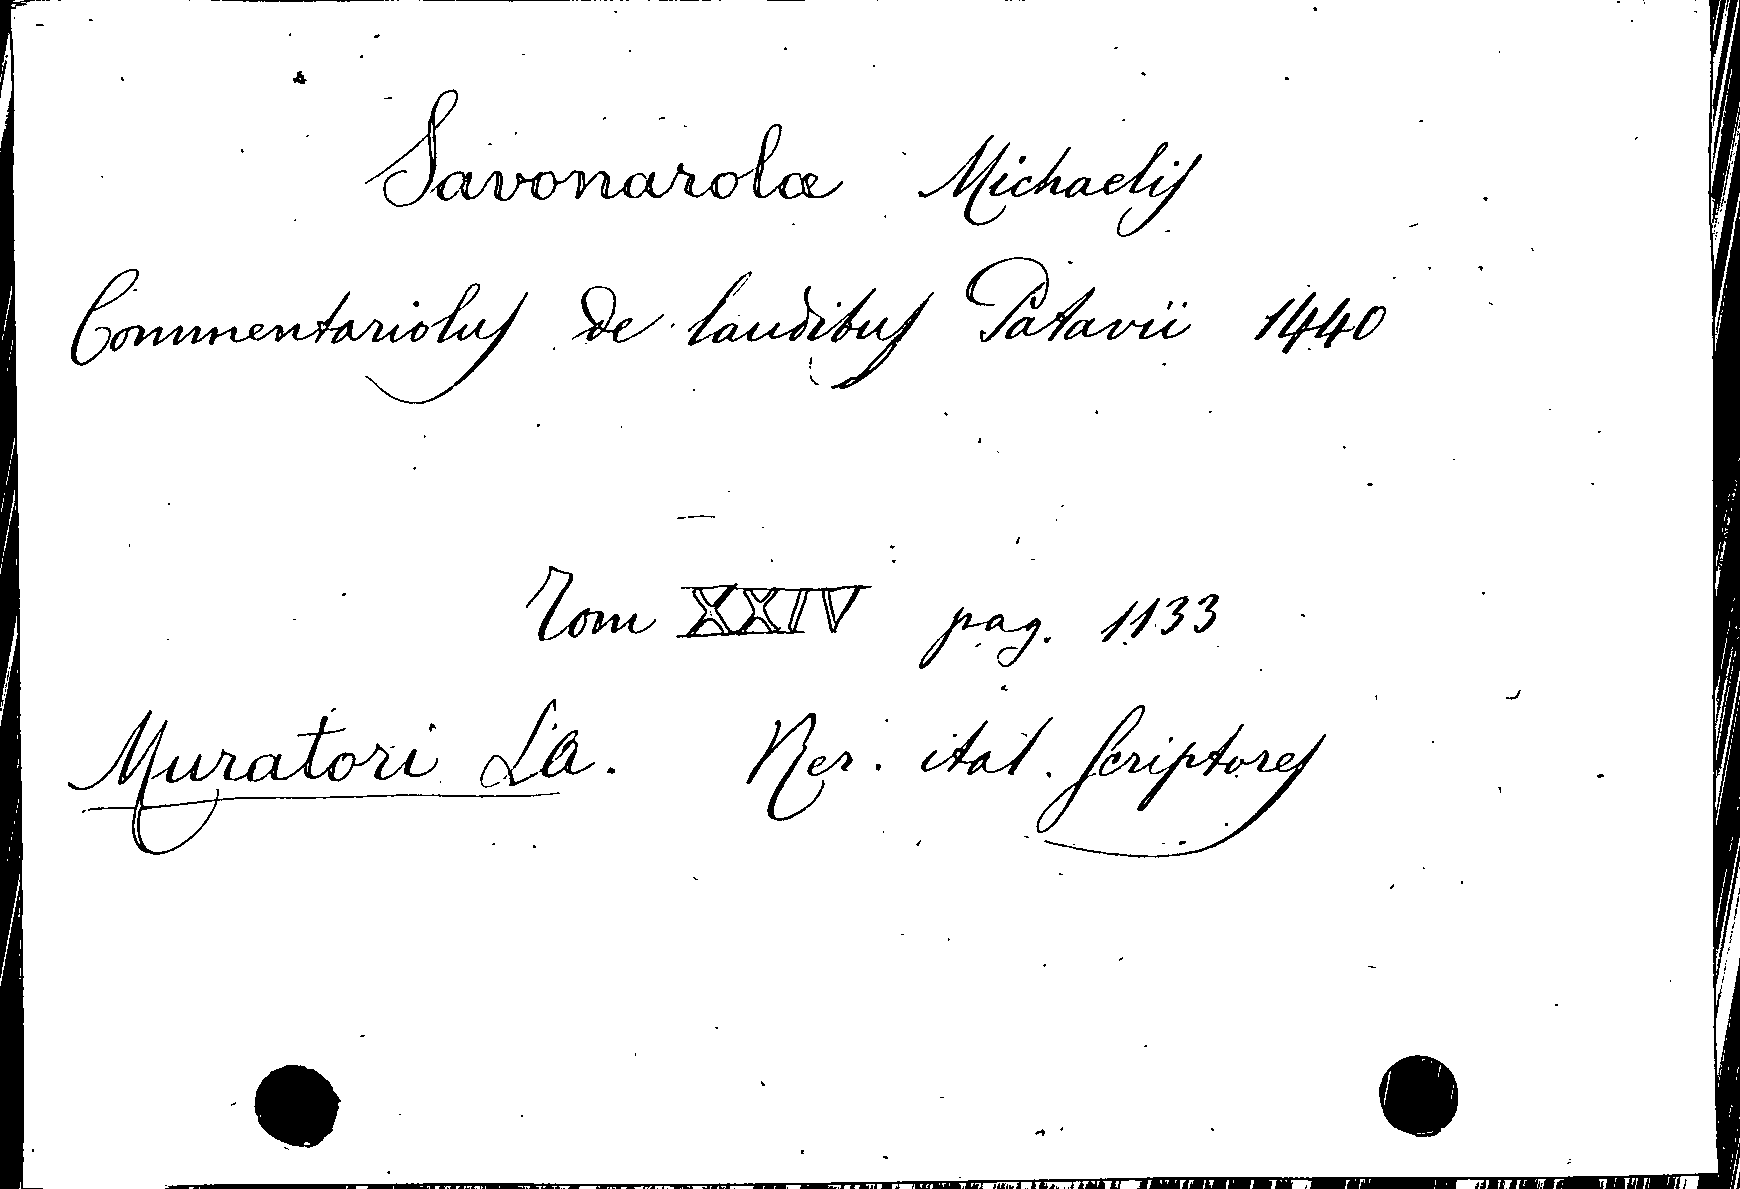 Savonarolæ Michaelis
Commentariolus de laudibus Patavii 1440
Tom XXIV pag. 1133
Muratori LA. Rer. ital. Scriptores